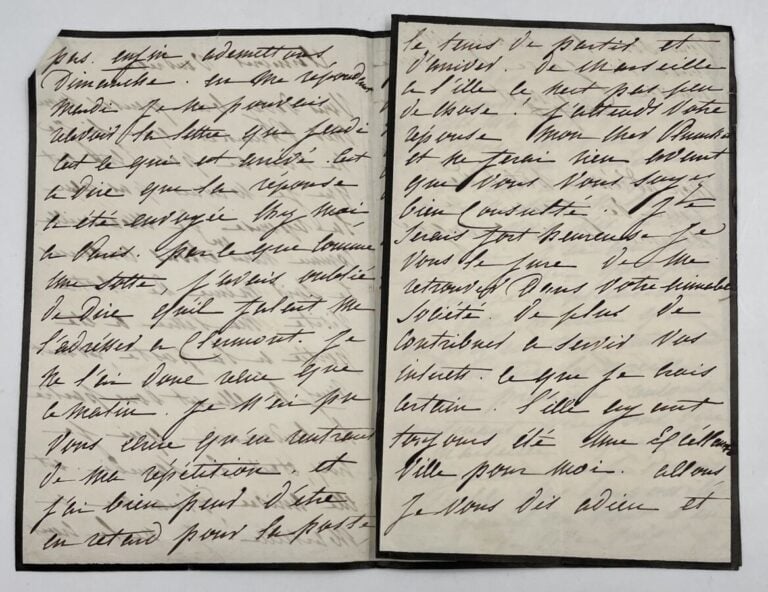 pas. enfin admettons
Dimanche. en me repondant
mardi je ne pouvais
recevoir la lettre que jeudi
c'est ce qui est arrivé. c'est
a dire que la réponse
a été envoyée chez moi
a Paris. parce que comme
une sotte j'avais oublié
de dire qu'il falait me
l'adresser a Clermont. je
ne l'ai donc reçue que
ce matin. je n'ai pu
vous ecrire qu'en rentrant
de ma répétition. et
j'ai bien peur d'être
en retard pour la poste
le tems de partir et
d'arriver. de Marseille
a Lille ce n'est pas peu
de chose! j'attends votre
réponse mon cher
et ne ferai rien avant
que vous vous soyez
bien consulté. je
serais fort heureuse je
vous le jure de me
retrouver dans votre aimable
société. de plus de
contribuer a servir vos
interets. ce que je crois
certain. Lille ayant
toujours été une excéllente
ville pour moi. allons
je vous dis adieu et